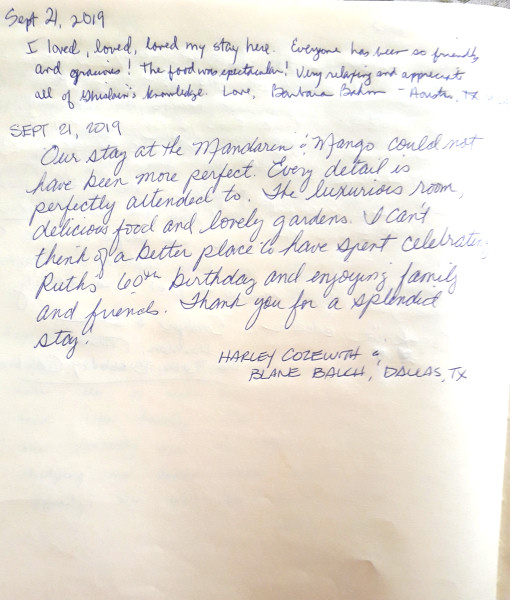 Sept 21, 2019
I loved, loved, loved my stay here. Everyone has been so friendly
and gracious! The food was spectacular! Very relaxing and appreciate
all of Ghislain's knowledge. Love, Barbara - Houston, TX
SEPT 21, 2019
Our stay at the Mandarin & Mango could not
have been more perfect. Every detail is
perfectly attended to. The luxurious room,
delicious food and lovely gardens. I can't
think of a better place to have spent celebrating
Ruths' 60th birthday and enjoying family
and friends. Thank you for a splended
stay!
HARLEY COZEWITH &
BLANE BALCH, DALLAS, TX